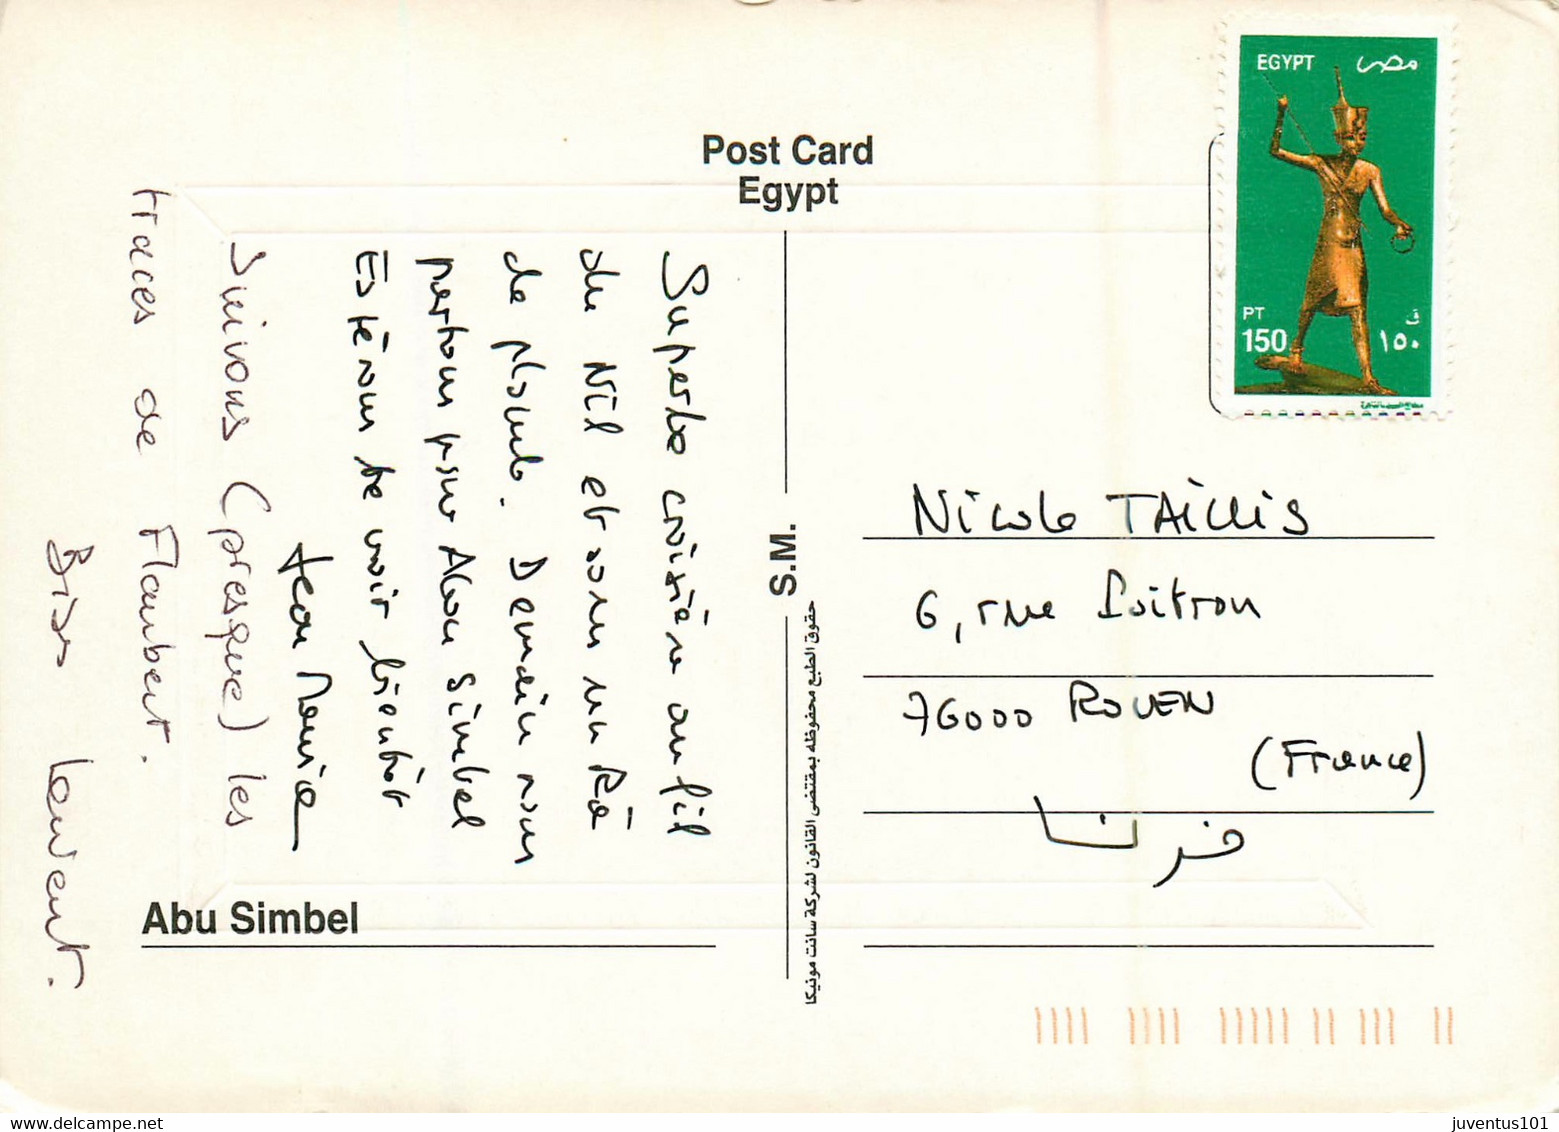 Post Card
Egypt
EGYPT مصر
PT ق
150 ١٥٠
Superbe croisière au fil
du Nil et sous un Râ
de plomb. Demain nous
partons pour Abou Simbel
Espérons te voir bientôt
Jean Maurice
Suivons (presque) les
traces de Flaubert.
Bises Laurent.
Abu Simbel
S.M.
حقوق الطبع محفوظه بمقتضى القانون لشركة سانت مونيكا
Nicole TAILLIS
6, rue
76000 ROUEN
(France)
فرنسا
juventus101